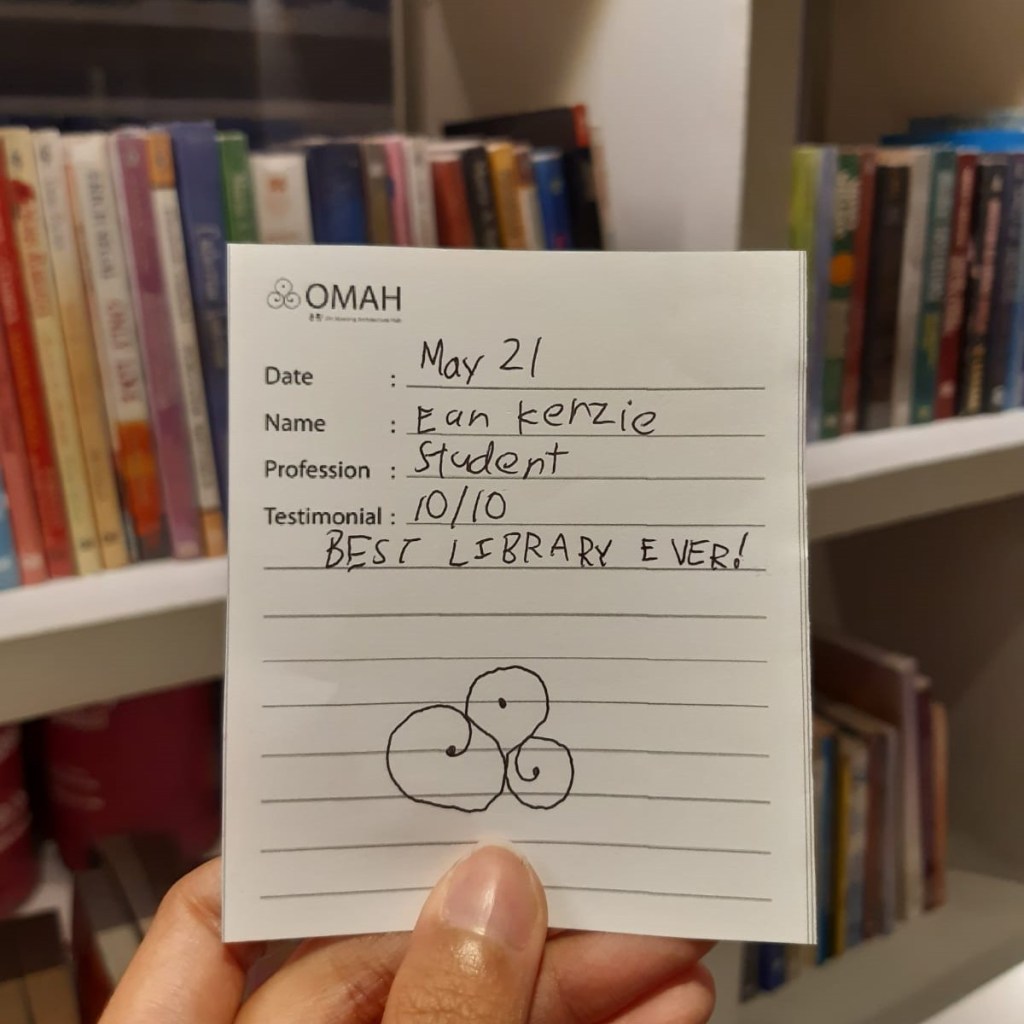 OMAH
Date : May 21
Name : Ean kenzie
Profession : Student
Testimonial : 10/10
BEST LIBRARY EVER!